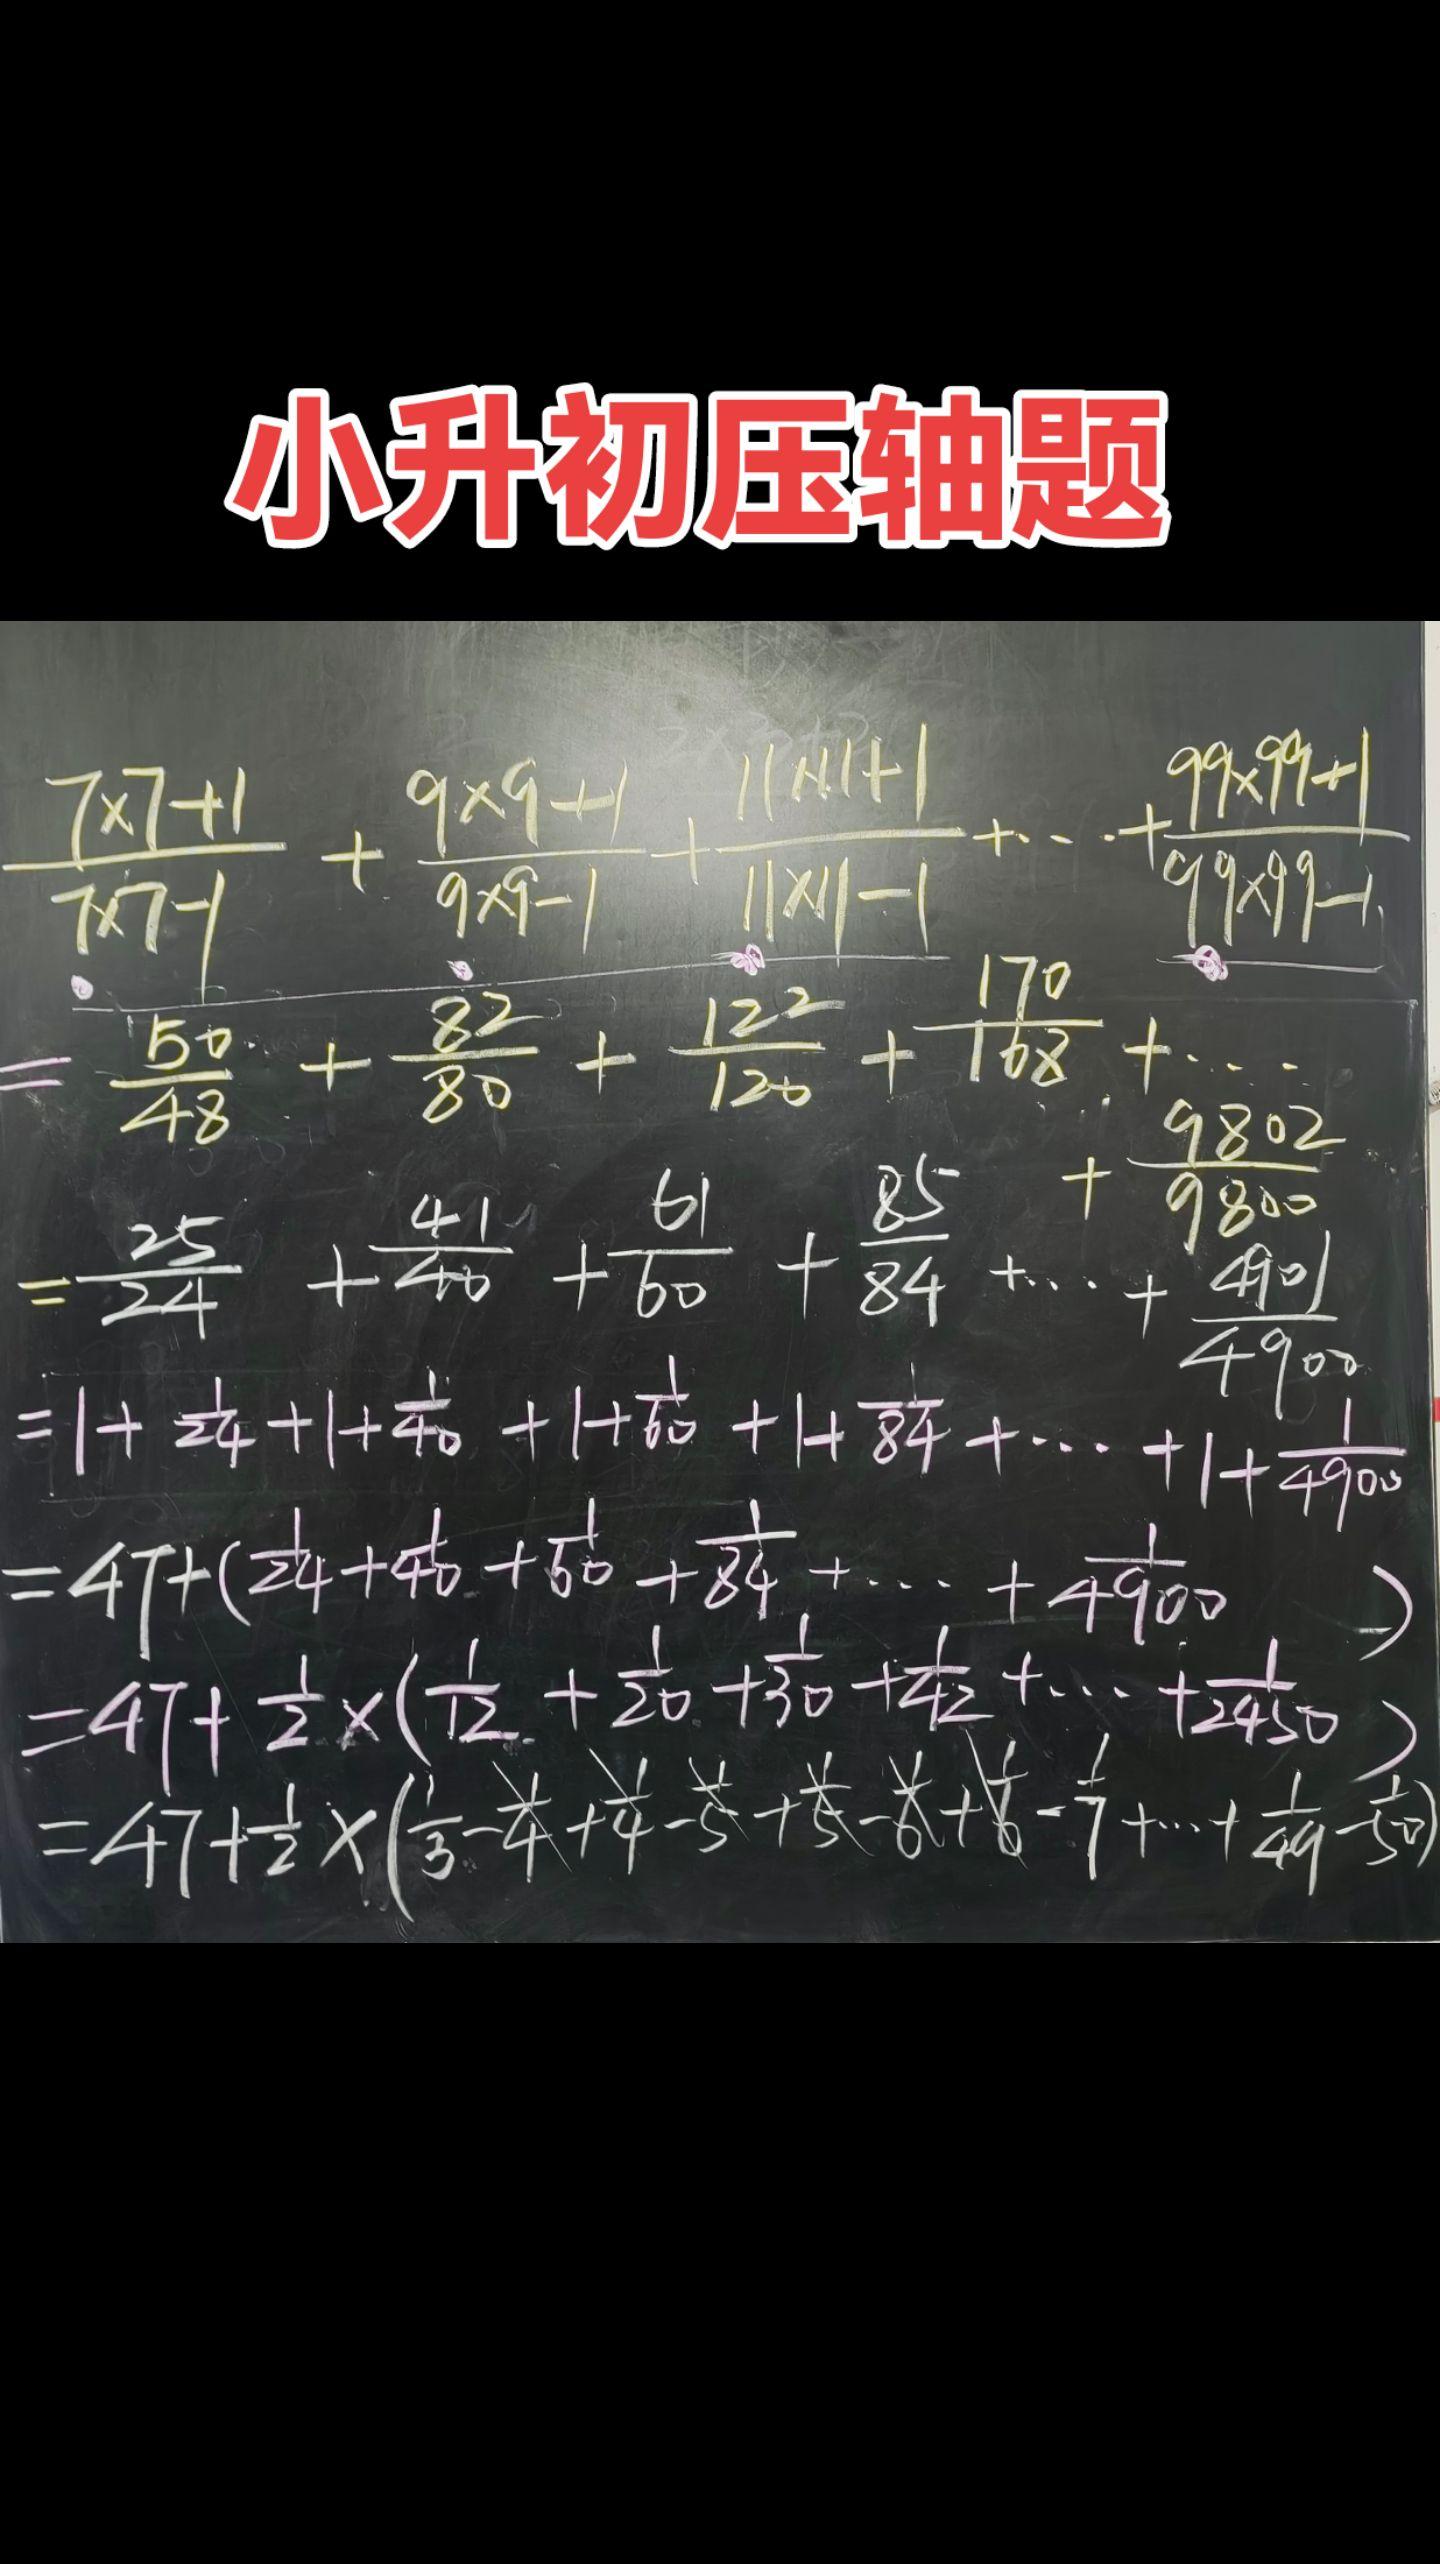 小升初压轴题
7×7+1/7×7-1 + 9×9+1/9×9-1 + 11×11+1/11×11-1 +···+ 99×99+1/99×99-1
= 50/48 + 82/80 + 122/120 + 170/168 +····
+ 9802/9800
= 25/24 + 41/40 + 61/60 + 85/84 +···+ 4901/4900
=1+ 1/24 +1+ 1/40 +1+ 1/60 +1+ 1/84 +···+1+ 1/4900
=47+(1/24+1/40+1/60+1/84+···+1/4900)
=47+1/2×(1/12+1/20+1/30+1/42+···+1/2450)
=47+1/2×(1/3-1/4+1/4-1/5+1/5-1/6+1/6-1/7+···+1/49-1/50)